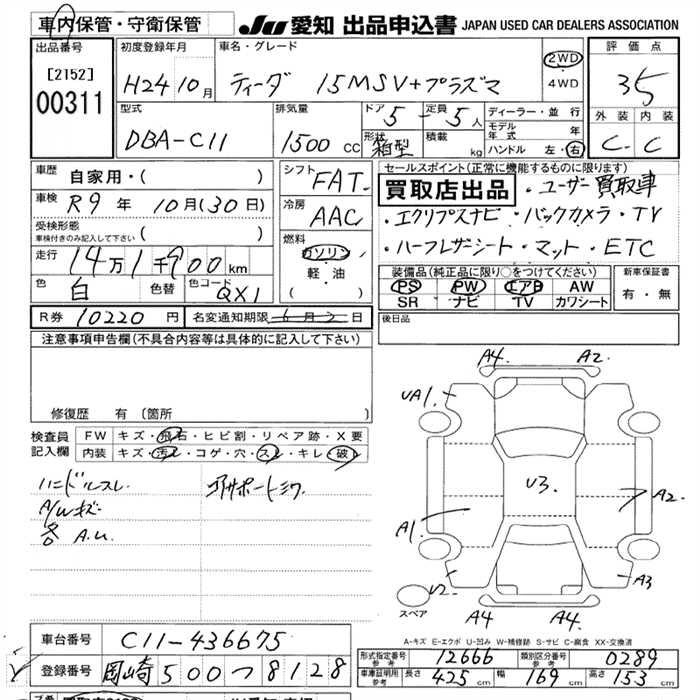 車内保管・守衛保管
JU 愛知 出品申込書 JAPAN USED CAR DEALERS ASSOCIATION
出品番号
[2152]
00311
初度登録年月
H24 10月
車名・グレード
ティーダ 15MSV+プラズマ
2WD
・
4WD
評価点
3.5
外装 内装
C C
型式
DBA-C11
排気量
1500 cc
ドア 5 定員 5人
形状 箱型 積載 kg
ディーラー・並行
モデル年式 年
ハンドル 左・右
車歴 自家用・( )
車検 R9年 10月(30日)
受検形態
車検付きのみ記入して下さい ( )
走行 14万1千900km
色 白 色替 色コード QX1
シフト FAT
冷房 AAC
燃料
ガソリン
軽・油
( )
セールスポイント(正常に機能するものに限ります)
買取店出品 ・ユーザー買取車
・エクリプスナビ・バックカメラ・TV
・ハーフレザーシート・マット・ETC
装備品(純正品に限り○をつけてください)
PS PW エアB AW
SR ナビ TV カワシート
新車保証書
有・無
R券 10220円 名変通知期限 6月2日
後日品
注意事項申告欄(不具合内容等は具体的に記入して下さい)
修復歴 有 (箇所
検査員
記入欄
FW キズ・飛石・ヒビ割・リペア跡・X要
内装 キズ・汚レ・コゲ・穴・スレ・キレ・破レ
ハンドルスレ
A/Wキズ
各 A.U.
コアサポートミワ
A4 A2
UA1
U3
A2
A1
U2
A3
スペア
A4 A4
A-キズ E-エクボ U-凹み W-補修跡 S-サビ C-腐食 XX-交換済
車台番号 C11-436675
登録番号 岡崎 500 つ 8128
形式指定番号 参考 12666 類別区分番号 参考 0289
車庫証明用 参考 長さ 425cm 幅 169cm 高さ 153cm